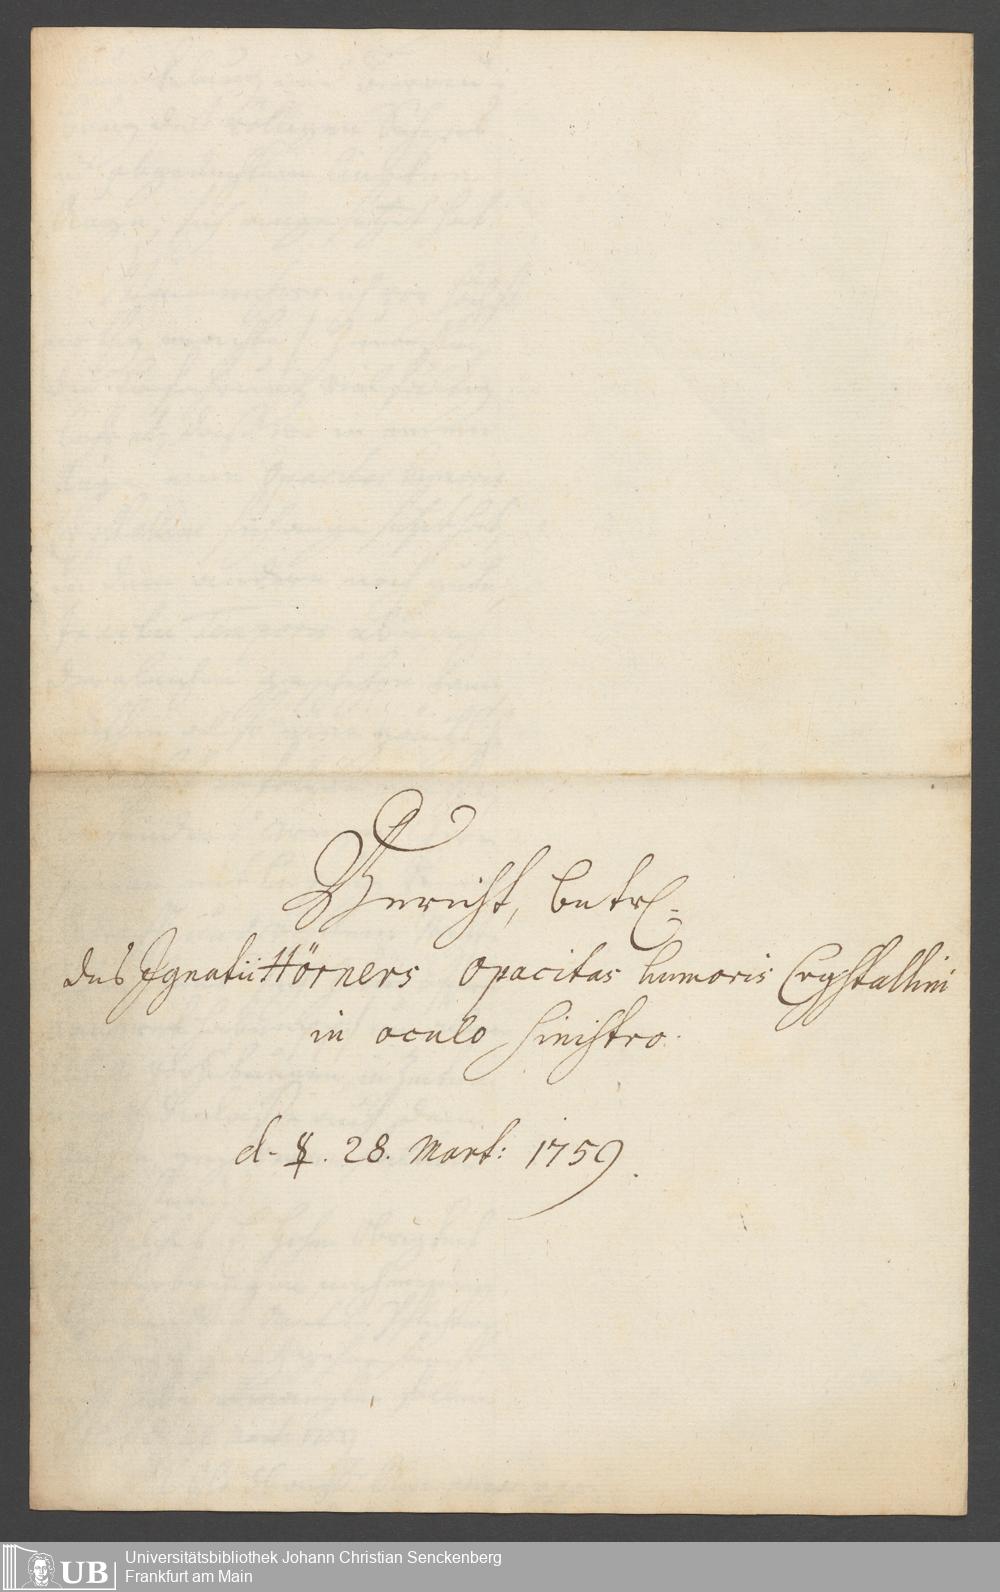 Bericht, betrf.
des Ignatii Hörners opacitas humoris Crystallini
in oculo sinistro.
d. ☿. 28. Mart: 1759.
UB
Universitätsbibliothek Johann Christian Senckenberg
Frankfurt am Main